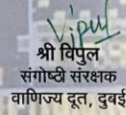 Vipul
श्री विपुल
संगोष्ठी संरक्षक
वाणिज्य दूत, दुबई